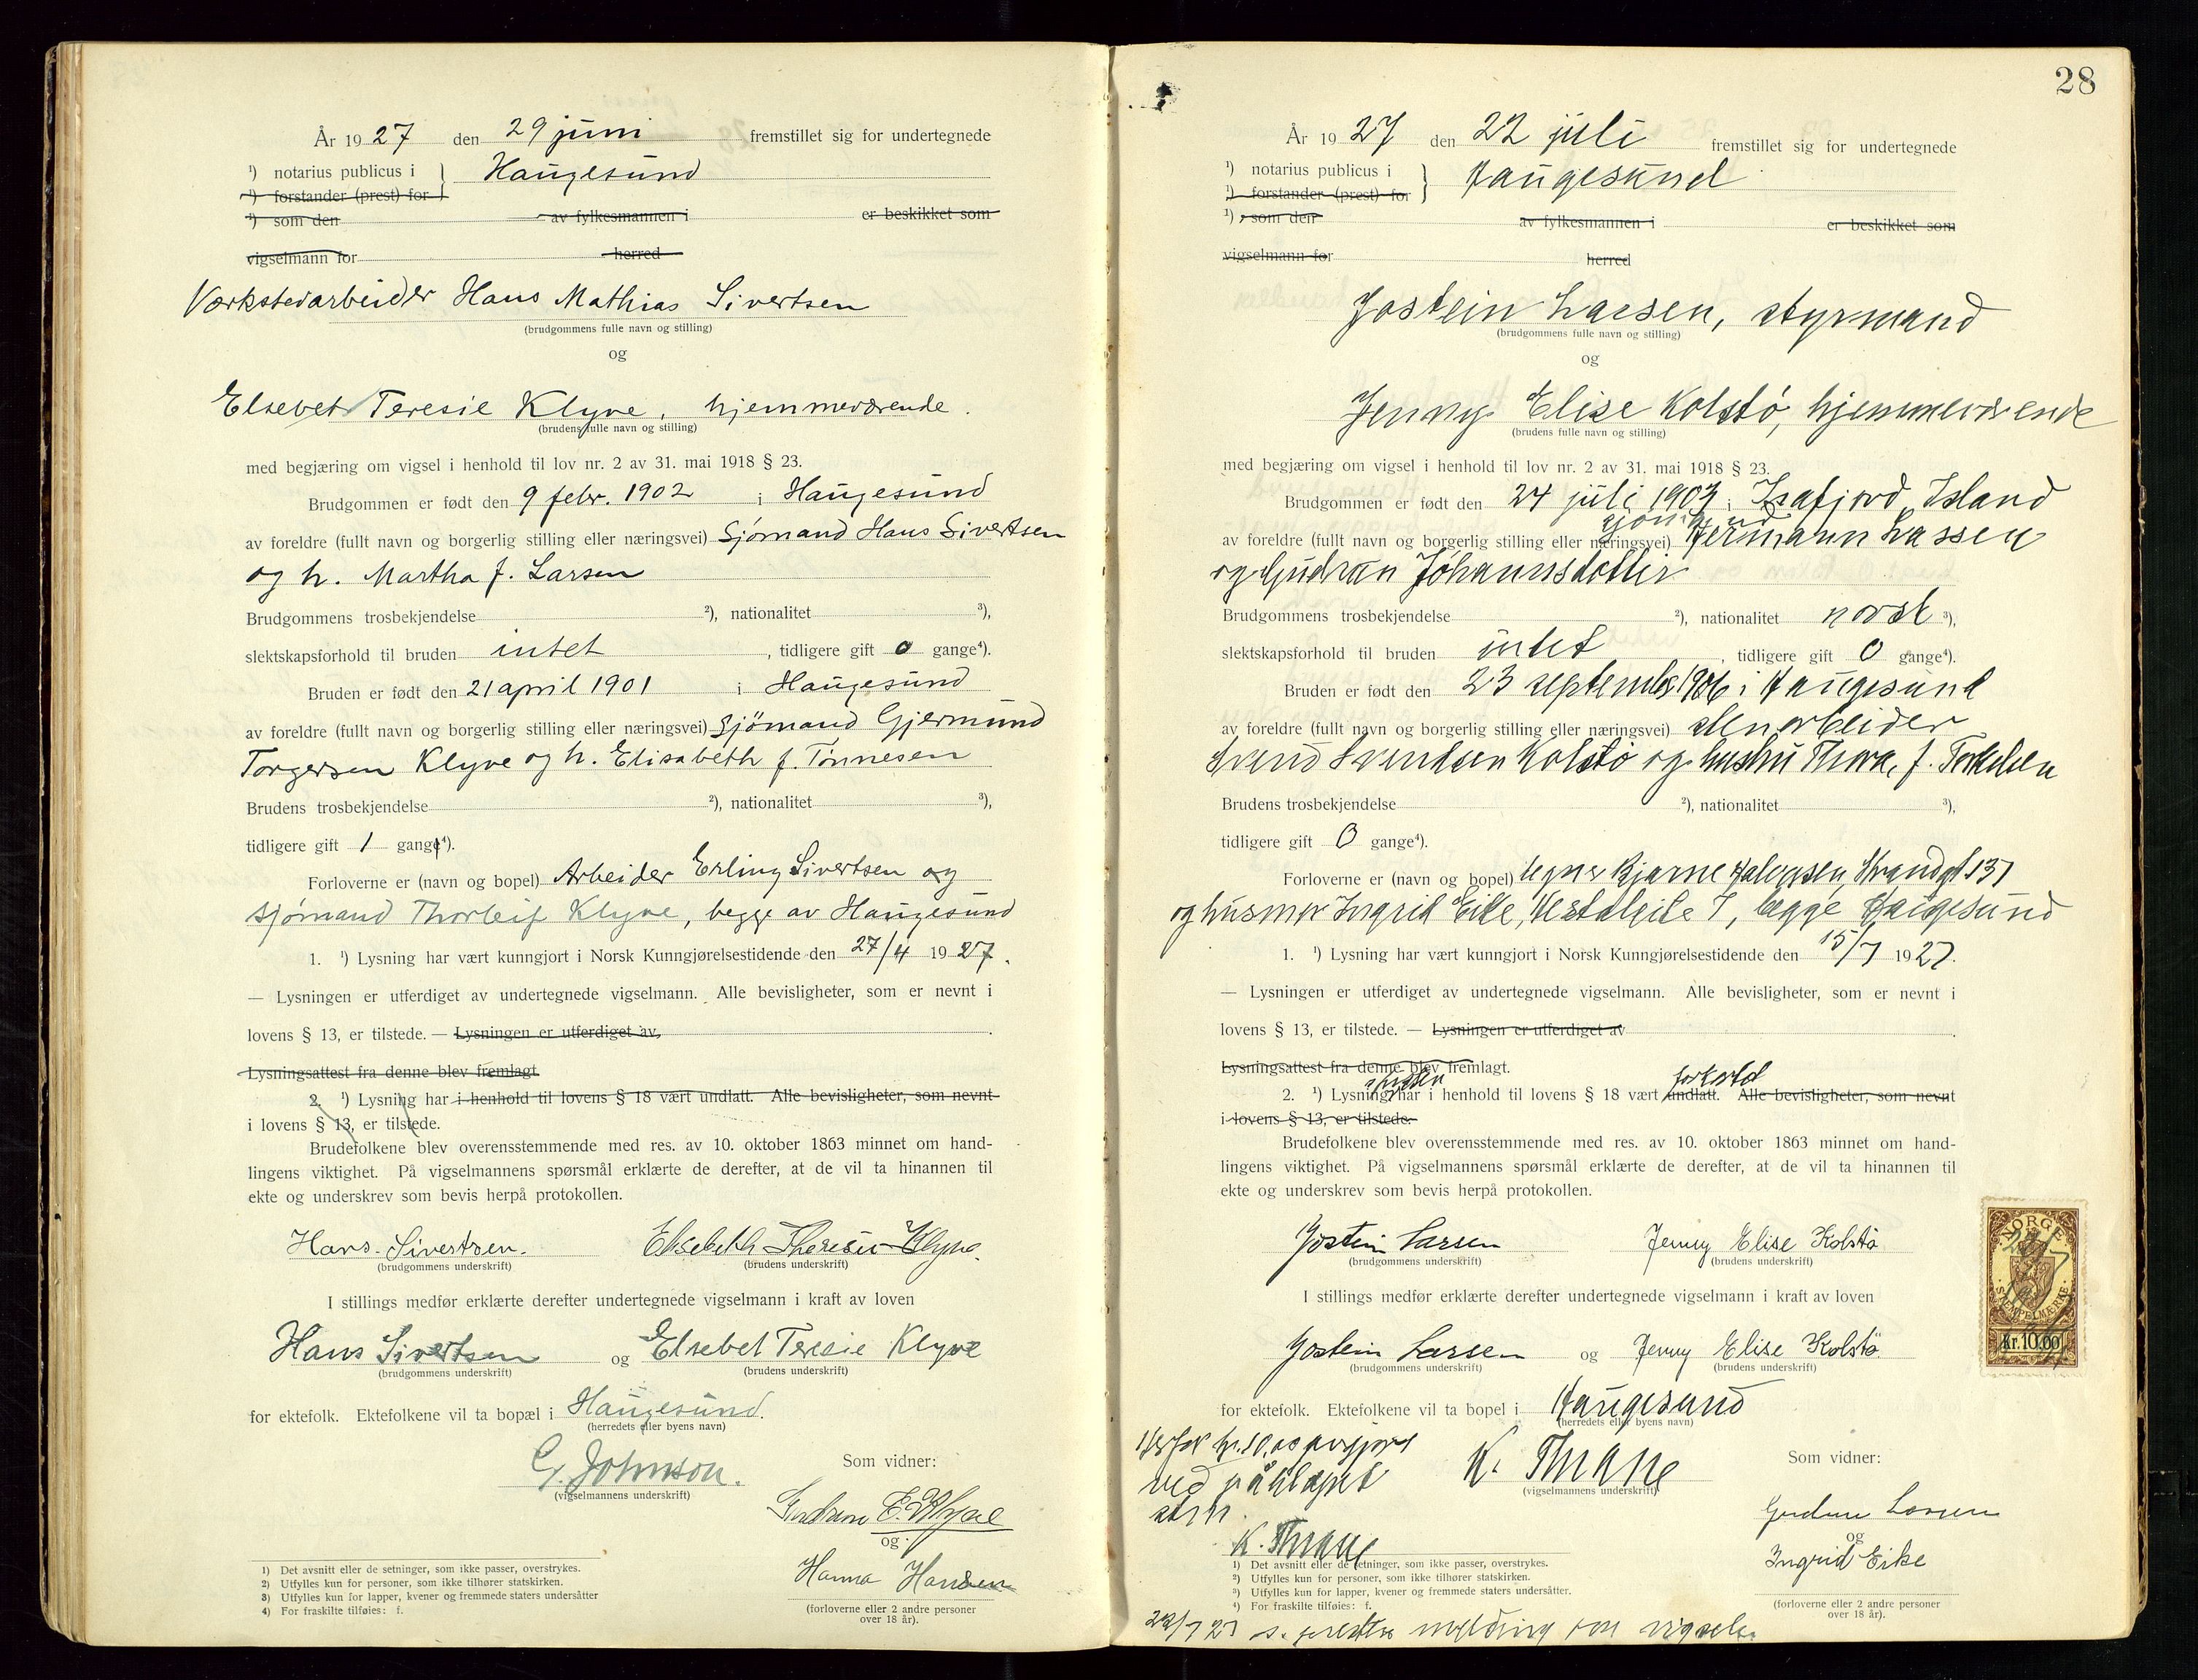 År 1927 den 29 juni fremstillet sig for undertegnede
¹) notarius publicus i } Haugesund
¹) forstander (prest) for
¹) som den av fylkesmannen i er beskikket som
vigselmann for herred
Værkstedarbeider Hans Mathias Sivertsen
(brudgommens fulle navn og stilling)
og
Elsebet Teresie Klyve, hjemmeværende.
(brudens fulle navn og stilling)
med begjæring om vigsel i henhold til lov nr. 2 av 31. mai 1918 § 23.
Brudgommen er født den 9 febr. 1902 i Haugesund
av foreldre (fullt navn og borgerlig stilling eller næringsvei) Sjömand Hans Sivertsen
og h. Martha f. Larsen
Brudgommens trosbekjendelse ²), nationalitet ³),
slektskapsforhold til bruden intet, tidligere gift 0 gange⁴).
Bruden er født den 21 april 1901 i Haugesund
av foreldre (fullt navn og borgerlig stilling eller næringsvei) Sjömand Gjermund
Torgersen Klyve og h. Elisabeth f. Tönnesen
Brudens trosbekjendelse ²), nationalitet ³),
tidligere gift 1 gange⁴).
Forloverne er (navn og bopel) Arbeider Erling Sivertsen og
sjømand Thorleif Klyve, begge av Haugesund
1. ¹) Lysning har vært kunngjort i Norsk Kunngjørelsestidende den 27/4 1927.
— Lysningen er utferdiget av undertegnede vigselmann. Alle bevisligheter, som er nevnt i
lovens § 13, er tilstede. — Lysningen er utferdiget av,
Lysningsattest fra denne blev fremlagt.
2. ¹) Lysning har i henhold til lovens § 18 vært undlatt. Alle bevisligheter, som nevnt
i lovens § 13, er tilstede.
Brudefolkene blev overensstemmende med res. av 10. oktober 1863 minnet om hand-
lingens viktighet. På vigselmannens spørsmål erklærte de derefter, at de vil ta hinannen til
ekte og underskrev som bevis herpå protokollen.
Hans Sivertsen. Elsebeth Theresie Klyve.
(brudgommens underskrift) (brudens underskrift)
I stillings medfør erklærte derefter undertegnede vigselmann i kraft av loven
Hans Sivertsen og Elsebet Teresie Klyve
(brudgommens underskrift) (brudens underskrift)
for ektefolk. Ektefolkene vil ta bopæl i Haugesund.
(herredets eller byens navn)
G. Johnson.
(vigselmannens underskrift)
Som vidner:
Gudrun E. Klyve
og
Hanna Hansen
(forloverne eller 2 andre personer
over 18 år).
1) Det avsnitt eller de setninger, som ikke passer, overstrykes.
2) Utfylles kun for personer, som ikke tilhører statskirken.
3) Utfylles kun for lapper, kvener og fremmede staters undersåtter
4) For fraskilte tilføies: f.
28
År 1927 den 22 juli fremstillet sig for undertegnede
¹) notarius publicus i } Haugesund
¹) forstander (prest) for
¹) som den av fylkesmannen i er beskikket som
vigselmann for herred
Jostein Larsen, styrmand
(brudgommens fulle navn og stilling)
og
Jenny Elise Kolstö, hjemmeværende
(brudens fulle navn og stilling)
med begjæring om vigsel i henhold til lov nr. 2 av 31. mai 1918 § 23.
Brudgommen er født den 24 juli 1903 i Isafjord, Island
av foreldre (fullt navn og borgerlig stilling eller næringsvei) sjömand Hermann Lassen
og Gudrun Johannsdottir
Brudgommens trosbekjendelse ²), nationalitet norsk ³),
slektskapsforhold til bruden intet, tidligere gift 0 gange⁴).
Bruden er født den 23 september 1906 i Haugesund
av foreldre (fullt navn og borgerlig stilling eller næringsvei) stenarbeider
Svend Svendsen Kolstö og hustru Thora, f. Torkelsen
Brudens trosbekjendelse ²), nationalitet ³),
tidligere gift 0 gange⁴).
Forloverne er (navn og bopel) Bjarne Halvorsen, Strandgt 131
og husmor Ingrid Eike, 7, begge Haugesund
1. ¹) Lysning har vært kunngjort i Norsk Kunngjørelsestidende den 15/7 1927.
— Lysningen er utferdiget av undertegnede vigselmann. Alle bevisligheter, som er nevnt i
lovens § 13, er tilstede. — Lysningen er utferdiget av
Lysningsattest fra denne blev fremlagt.
2. ¹) Lysningsfristen har i henhold til lovens § 18 vært undlatt. forkortet Alle bevisligheter, som nevnt
i lovens § 13, er tilstede.
Brudefolkene blev overensstemmende med res. av 10. oktober 1863 minnet om hand-
lingens viktighet. På vigselmannens spørsmål erklærte de derefter, at de vil ta hinannen til
ekte og underskrev som bevis herpå protokollen.
Jostein Larsen Jenny Elise Kolstö
(brudgommens underskrift) (brudens underskrift)
I stillings medfør erklærte derefter undertegnede vigselmann i kraft av loven
Jostein Larsen og Jenny Elise Kolstö
(brudgommens underskrift) (brudens underskrift)
for ektefolk. Ektefolkene vil ta bopel i Haugesund
(herredets eller byens navn)
Herfor kr. 10,00 avgjort
ved påklæpet
K. Thrane
K. Thrane
(vigselmannens underskrift)
Som vidner:
Gudrun Larsen
og
Ingrid Eike
(forloverne eller 2 andre personer
over 18 år).
¹) Det avsnitt eller de setninger, som ikke passer, overstrykes.
²) Utfylles kun for personer, som ikke tilhører statskirken.
³) Utfylles kun for lapper, kvener og fremmede staters undersåtter.
⁴) For fraskilte tilføies: f.
22/7 27 melding om vigselen
NORGE
STEMPELMÆRKE
Kr. 10.00